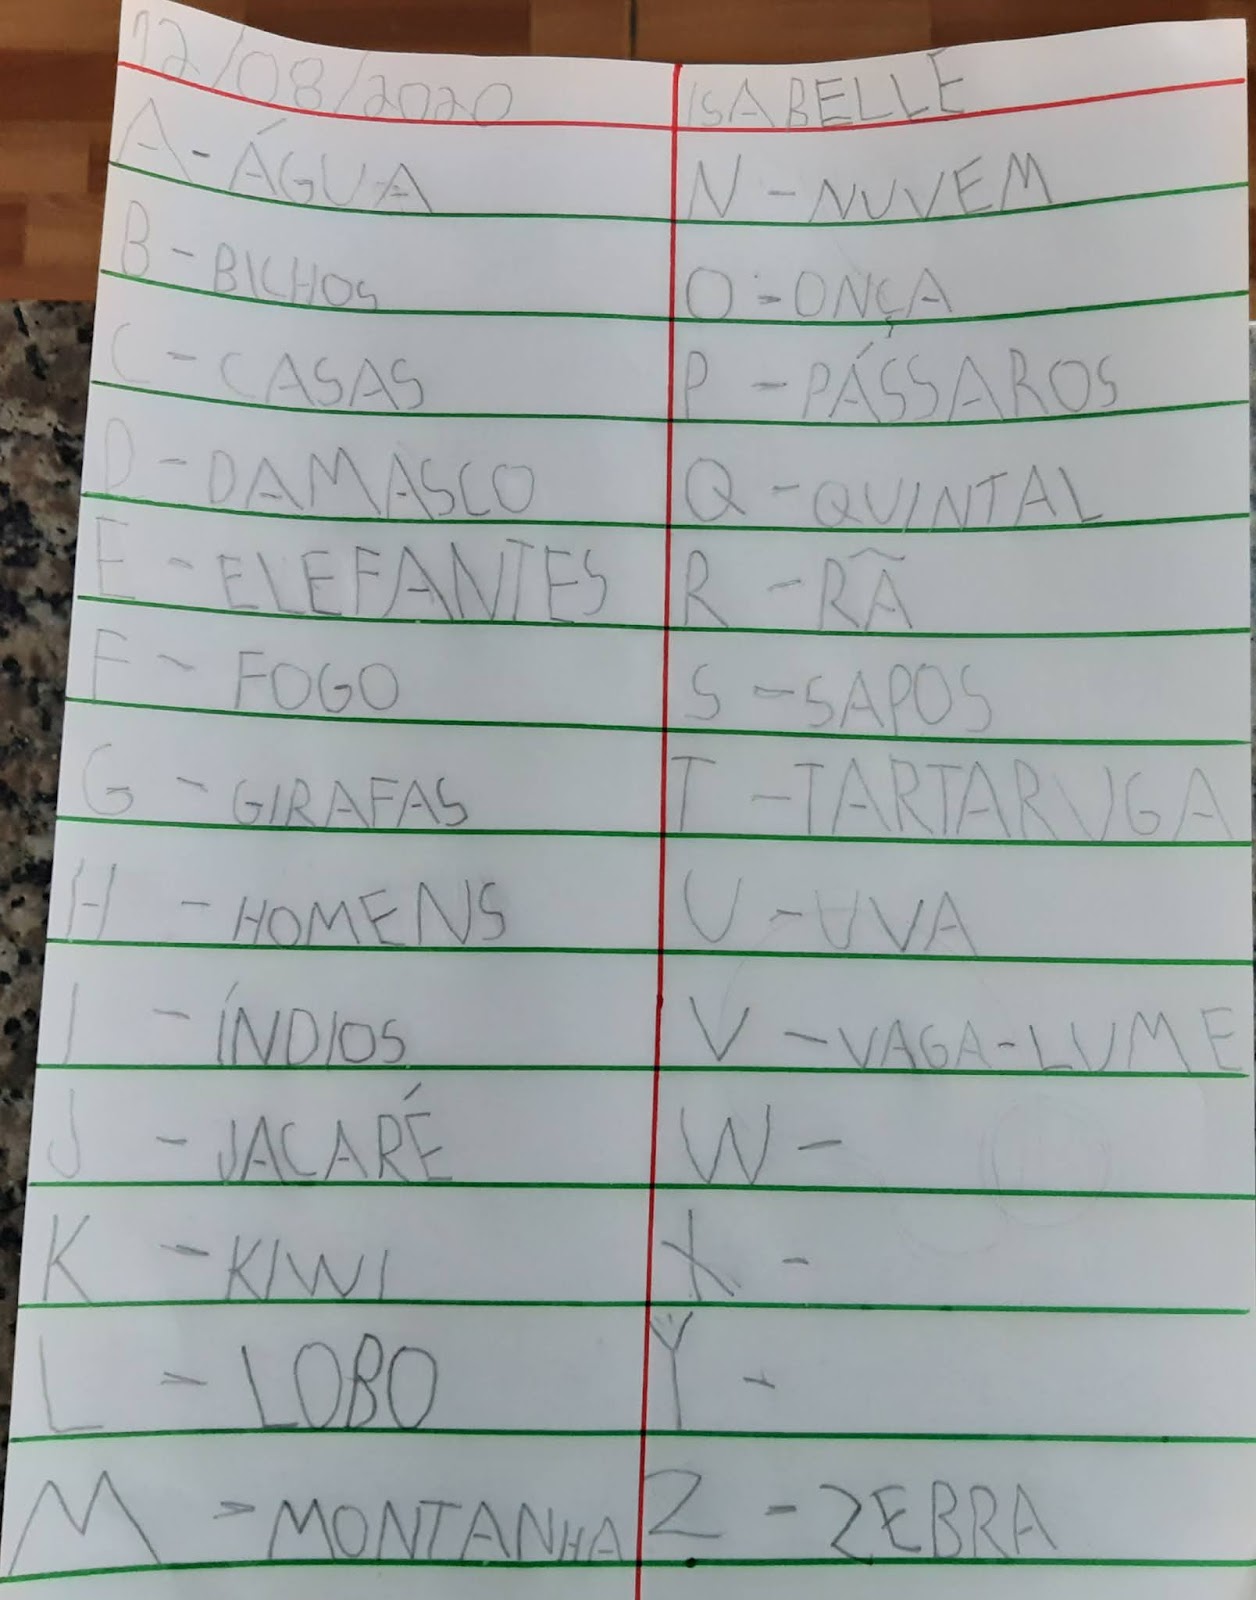 12/08/2020
A - ÁGUA
B - BICHOS
C - CASAS
D - DAMASCO
E - ELEFANTES
F - FOGO
G - GIRAFAS
H - HOMENS
I - ÍNDIOS
J - JACARÉ
K - KIWI
L - LOBO
M - MONTANHA
ISABELLE
N - NUVEM
O - ONÇA
P - PÁSSAROS
Q - QUINTAL
R - RÃ
S - SAPOS
T - TARTARUGA
U - UVA
V - VAGA-LUME
W -
X -
Y -
Z - ZEBRA